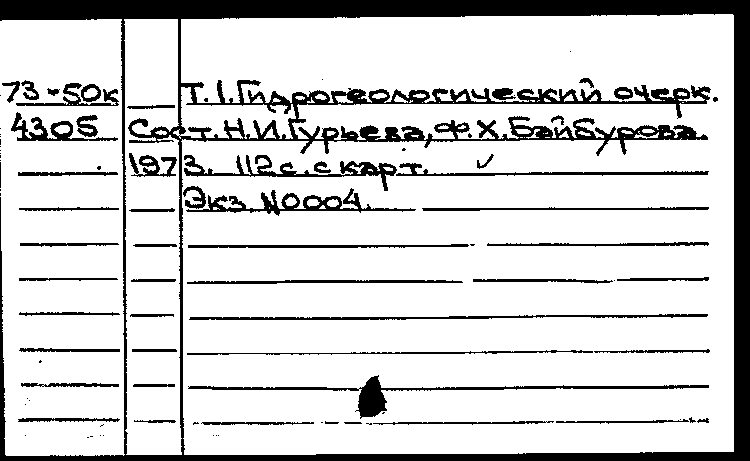 73-50к Т.1. Гидрогеологический очерк.
4305 Сост. Н.И. Гурьева, Ф.Х. Байбурова.
1973. 112 с. с карт.
Экз. N0004.